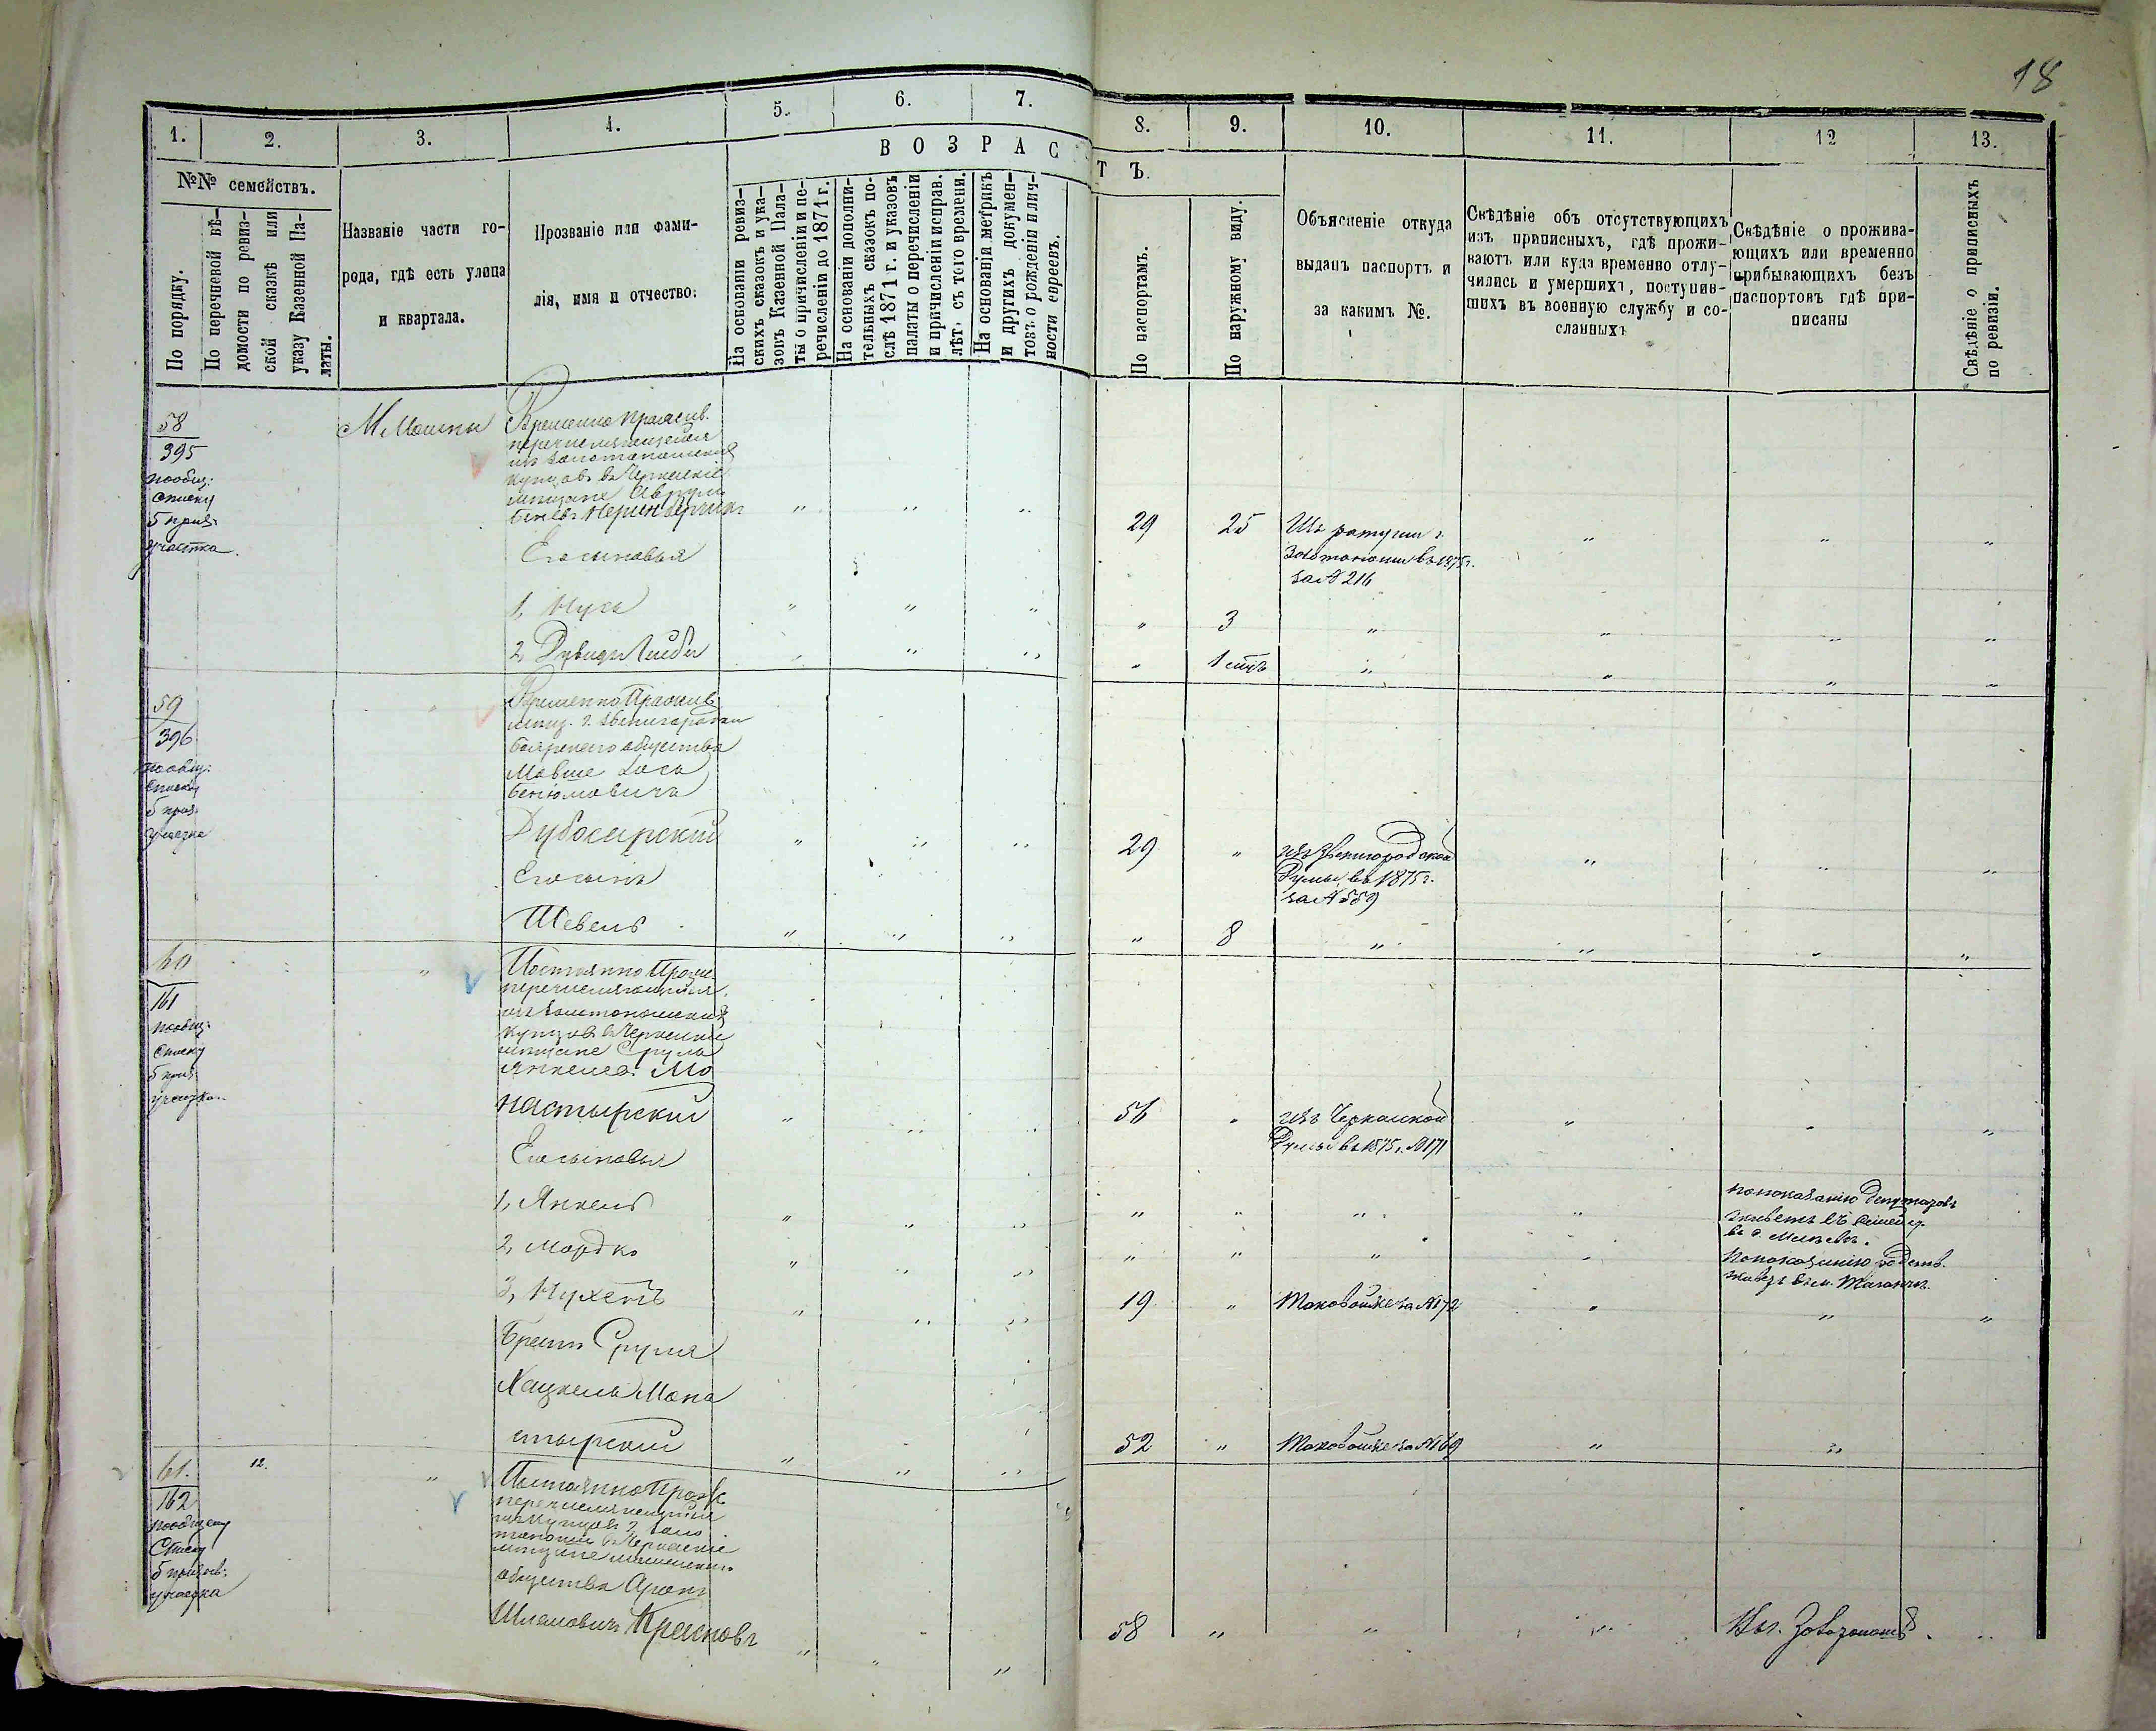 18
1. 2. 3. 4. 5. 6. 7. 8. 9. 10. 11. 12 13.
№№ семействъ.
По порядку.
По перечневой вѣ-
домости по ревиз-
ской сказкѣ или
указу Казенной Па-
латы.
Названіе части го-
рода, гдѣ есть улица
и квартала.
Прозваніе или фами-
лія, имя и отчество.
ВОЗРАСТЪ
На основаніи ревиз-
скихъ сказокъ и ука-
зовъ Казенной Пала-
ты о причисленіи и пе-
речисленіи до 1871 г.
На основаніи дополни-
тельныхъ сказокъ по-
слѣ 1871 г. и указовъ
палаты о перечисленіи
и причисленіи исправ.
лѣтъ съ того времени.
На основаніи метрикъ
и другихъ докумен-
товъ о рожденіи и лич-
ности евреевъ.
По паспортамъ.
По наружному виду.
Объясненіе откуда
выданъ паспортъ и
за какимъ №.
Свѣдѣніе объ отсутствующихъ
изъ приписныхъ, гдѣ прожи-
ваютъ или куда временно отлу-
чились и умершихъ, поступив-
шихъ въ военную службу и со-
сланныхъ
Свѣдѣніе о прожива-
ющихъ или временно
прибывающихъ безъ
паспортовъ гдѣ при-
писаны
Свѣдѣніе о приписныхъ
по ревизіи.
58
395
пообщ:
списку
5 приз.
участка
М Мошны
Временно Прожив.
перечисляющейся
изъ Золотоношскихъ
купцовъ въ Черкаскіе
мещане Аврумъ
" " " 29 25 Изъ ратуши г.
Золотоноши въ 1875 г.
за № 216
Его сыновья
1, Нусъ " " " " 3 " " " "
2, Дувидъ Лейба " " " " 1 " " " "
59
396
пообщ:
списку
5 приз.
участка
Временно Прожив.
мещ. г. Звенигородки
общества
Мовше Лось
Беніомовичъ
Дубосарский " " " 29 " изъ Звенигородской
Думы въ 1875 г.
за № 559
Его сынъ
Шевель " " " " 8 " " " "
60
161
пообщ:
списку
5 приз.
участка
Постоянно Прож.
перечисляющийся
изъ Золотоношскихъ
купцовъ въ Черкаские
мещане Сруль
Янкелев. Мо
настырский " " " 56 " изъ Черкаской
Думы въ 1875 г. № 171
Его сыновья
1, Янкель " " " " " " " по показанію депутатовъ
живетъ въ
2, Мордко " " " " " " " по показанію
живетъ въ м.
3, Нухемъ " " " 19 " Таковой же за № 172 " " "
Братъ Сруля
Хацкель Мона
стырский " " " 52 " Таковой же за № 169 " "
61. 12.
162
пообщему
списку
5 призыв:
участка
Постоянно Прож.
перечисляющийся
изъ купцовъ г. Золо
тоноши въ Черкаские
мещане мошенскаго
общества Аронъ
Шлемовичъ Красновъ " " " 58 " " "